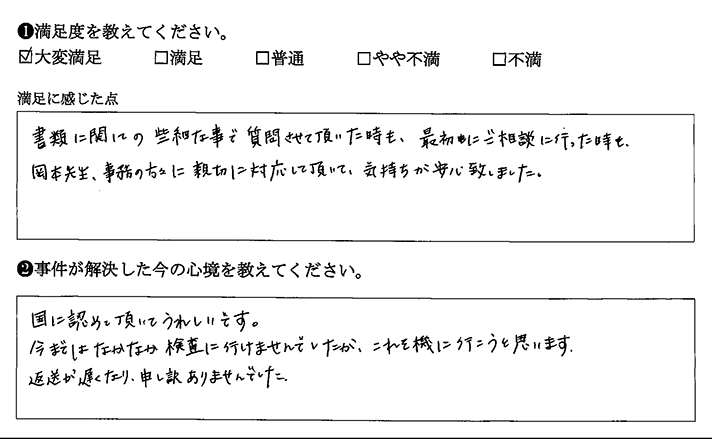 ❶満足度を教えてください。
☑大変満足 □満足 □普通 □やや不満 □不満
満足に感じた点
書類に関しての些細な事で質問させて頂いた時も、最初にご相談に行った時も、
岡本先生、事務の方々に親切に対応して頂いて、気持ちが安心致しました。
❷事件が解決した今の心境を教えてください。
国に認めて頂いてうれしいです。
今まではなかなか検査に行けませんでしたが、これを機に行こうと思います。
返送が遅くなり、申し訳ありませんでした。